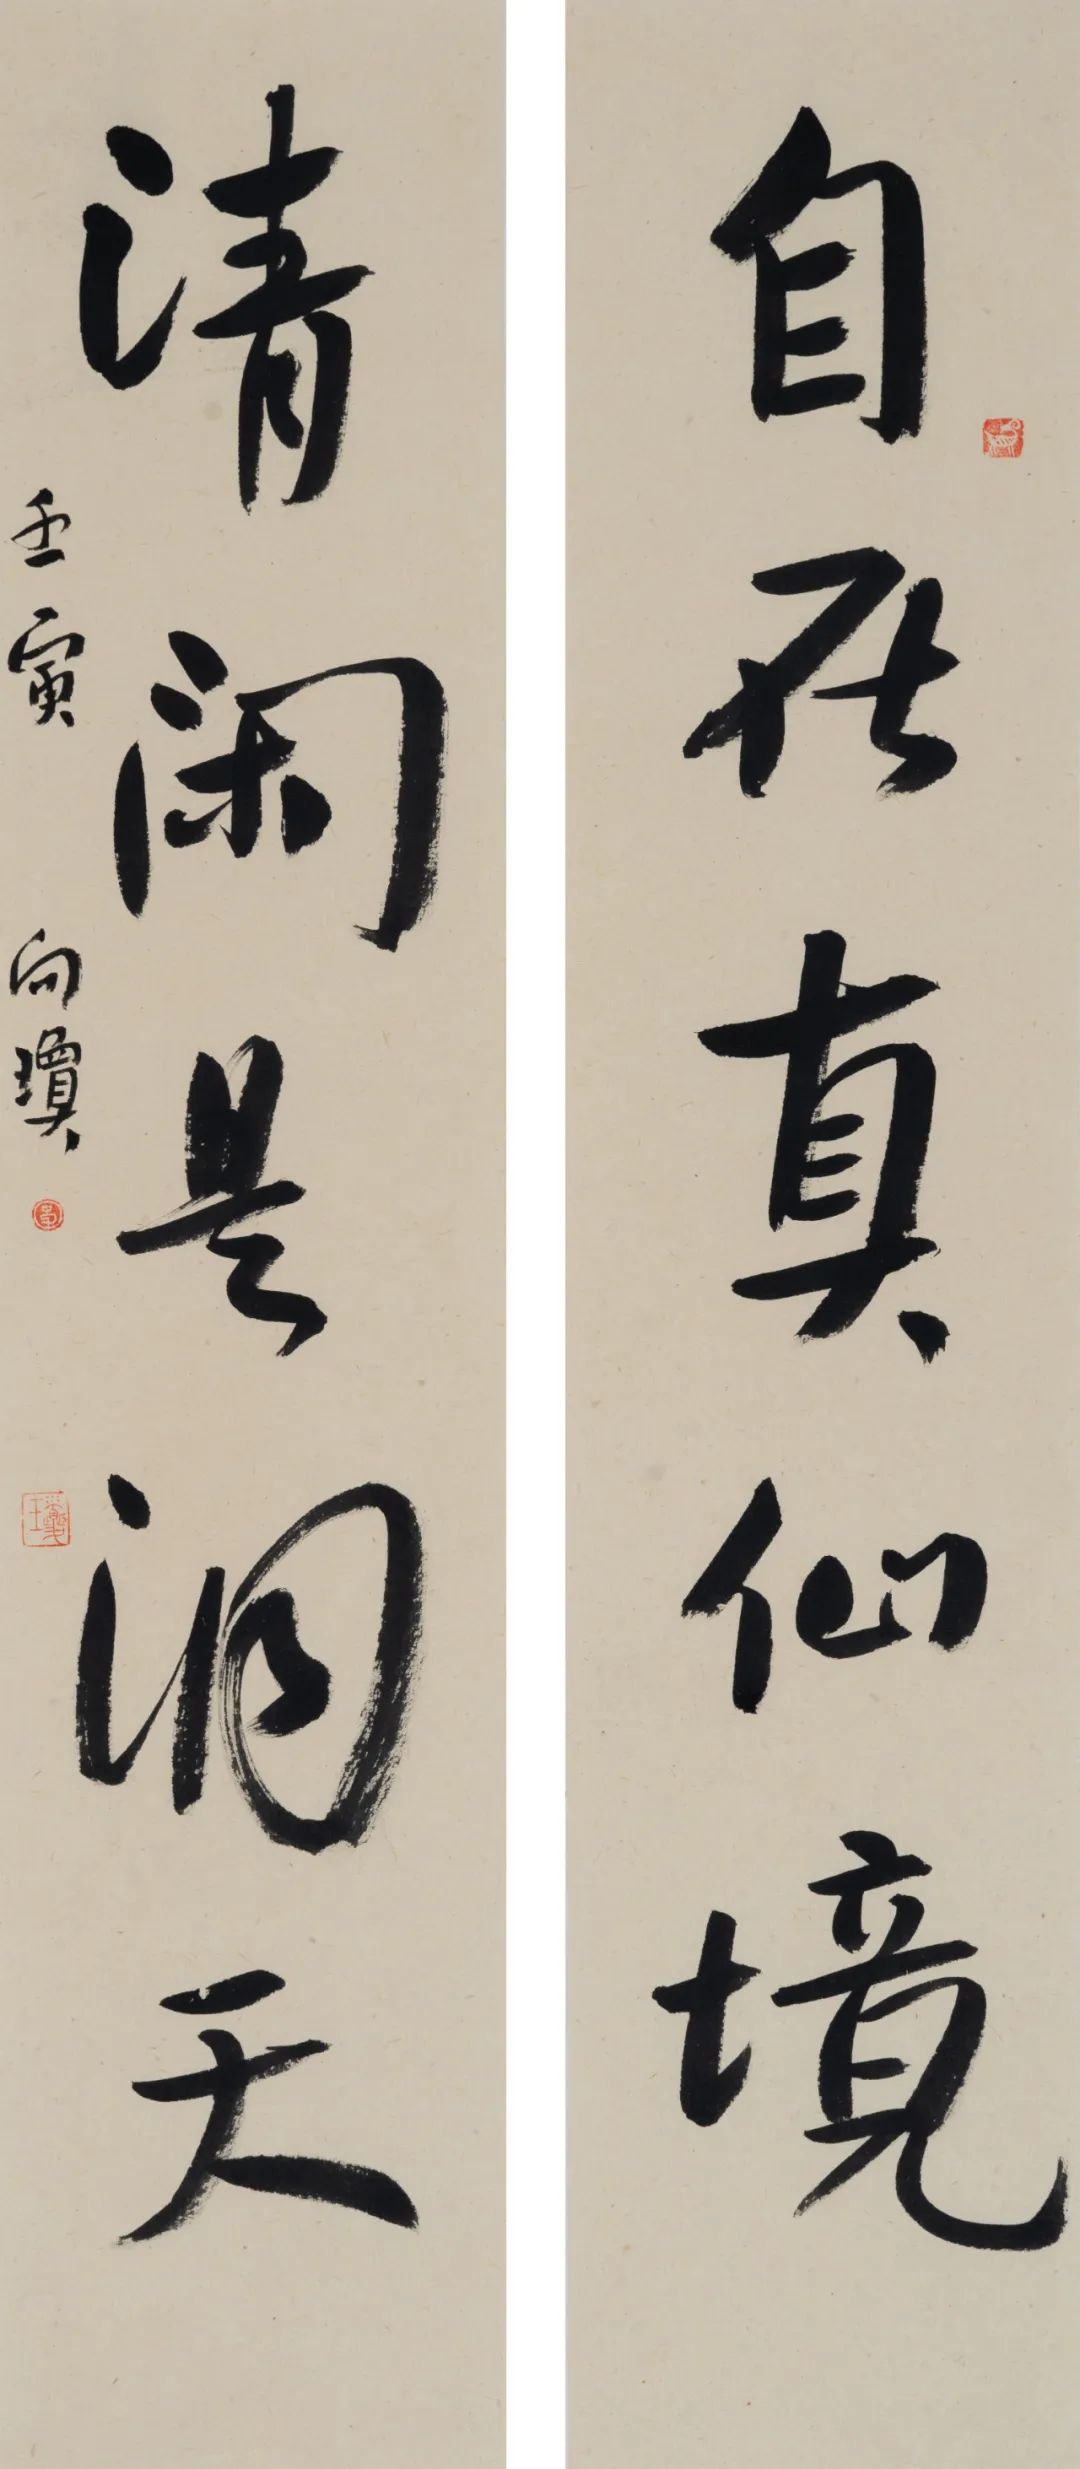 自在真仙境
清闲是洞天
壬寅
向瓊